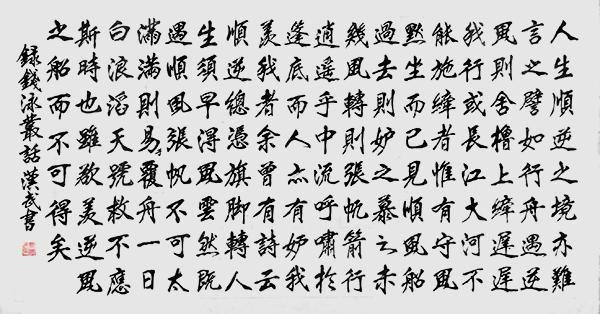 人生順逆之境亦難
言之譬如行舟遇逆
風則舍櫓上縴遲遲
我行或長江大河不
能施縴者惟有守風
默坐而已見順風船
過去則妒之慕之未
幾風轉則張帆箭行
逍遙乎中流呼嘯於
篷底而人亦有妒我
羨我者余曾有詩云
順逆總憑旗腳轉人
生須早得風雲然既
遇順風張帆不可太
滿滿則易覆舟一日
白浪滔天號救不應
斯時也雖欲羨逆風
之船而不可得矣
錄錢泳叢話漢武書